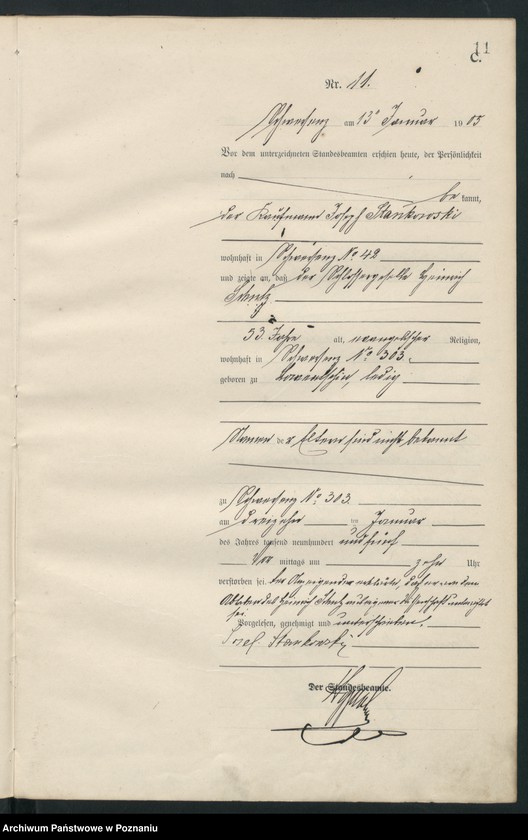 11
C.
Nr. 11.
Schwersenz am 13ᵗ Januar 1905
Vor dem unterzeichneten Standesbeamten erschien heute, der Persönlichkeit
nach
be kannt,
der Kaufmann Joseph Stankowski
wohnhaft in Schwersenz No 42
und zeigte an, daß der Schlossergeselle Heinrich
53 Jahre alt, evangelischer Religion,
wohnhaft in Schwersenz No 303.
geboren zu ledig
Namen der Eltern sind nicht bekannt
zu Schwersenz No 303
am dreizehn ten Januar
des Jahres tausend neunhundert und fünf
Vor mittags um zehn Uhr
verstorben sei. Der Anzeigende erklärte, daß er von dem
Ableben des Heinrich aus eigener Wissenschaft unterrichtet
sei.
Vorgelesen, genehmigt und unterschrieben.
Josef Stankowski
Der Standesbeamte.
Archiwum Państwowe w Poznaniu